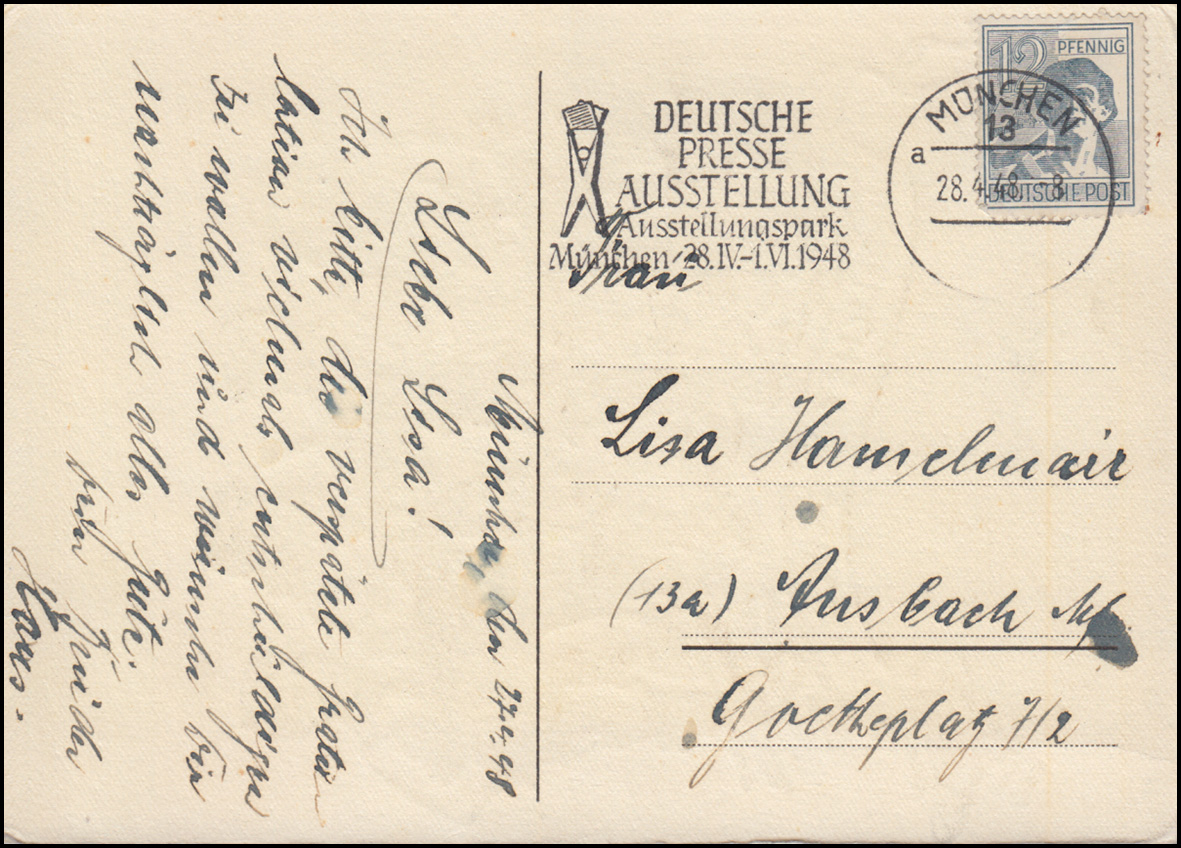 München, den 27.4.48
Liebe Lisa!
Ich bitte, die verspätete Gratu-
lation vielmals entschuldigen
zu wollen und wünsche Dir
nachträglich alles Gute.
Dein Bruder
12 PFENNIG
DEUTSCHE POST
MÜNCHEN
13
a
28.4.48 -8
DEUTSCHE
PRESSE
AUSSTELLUNG
Ausstellungspark
München 28.IV.-1.VI.1948
Frau
Lisa Hamelmair
(13a) Ansbach
Goetheplatz 7/2